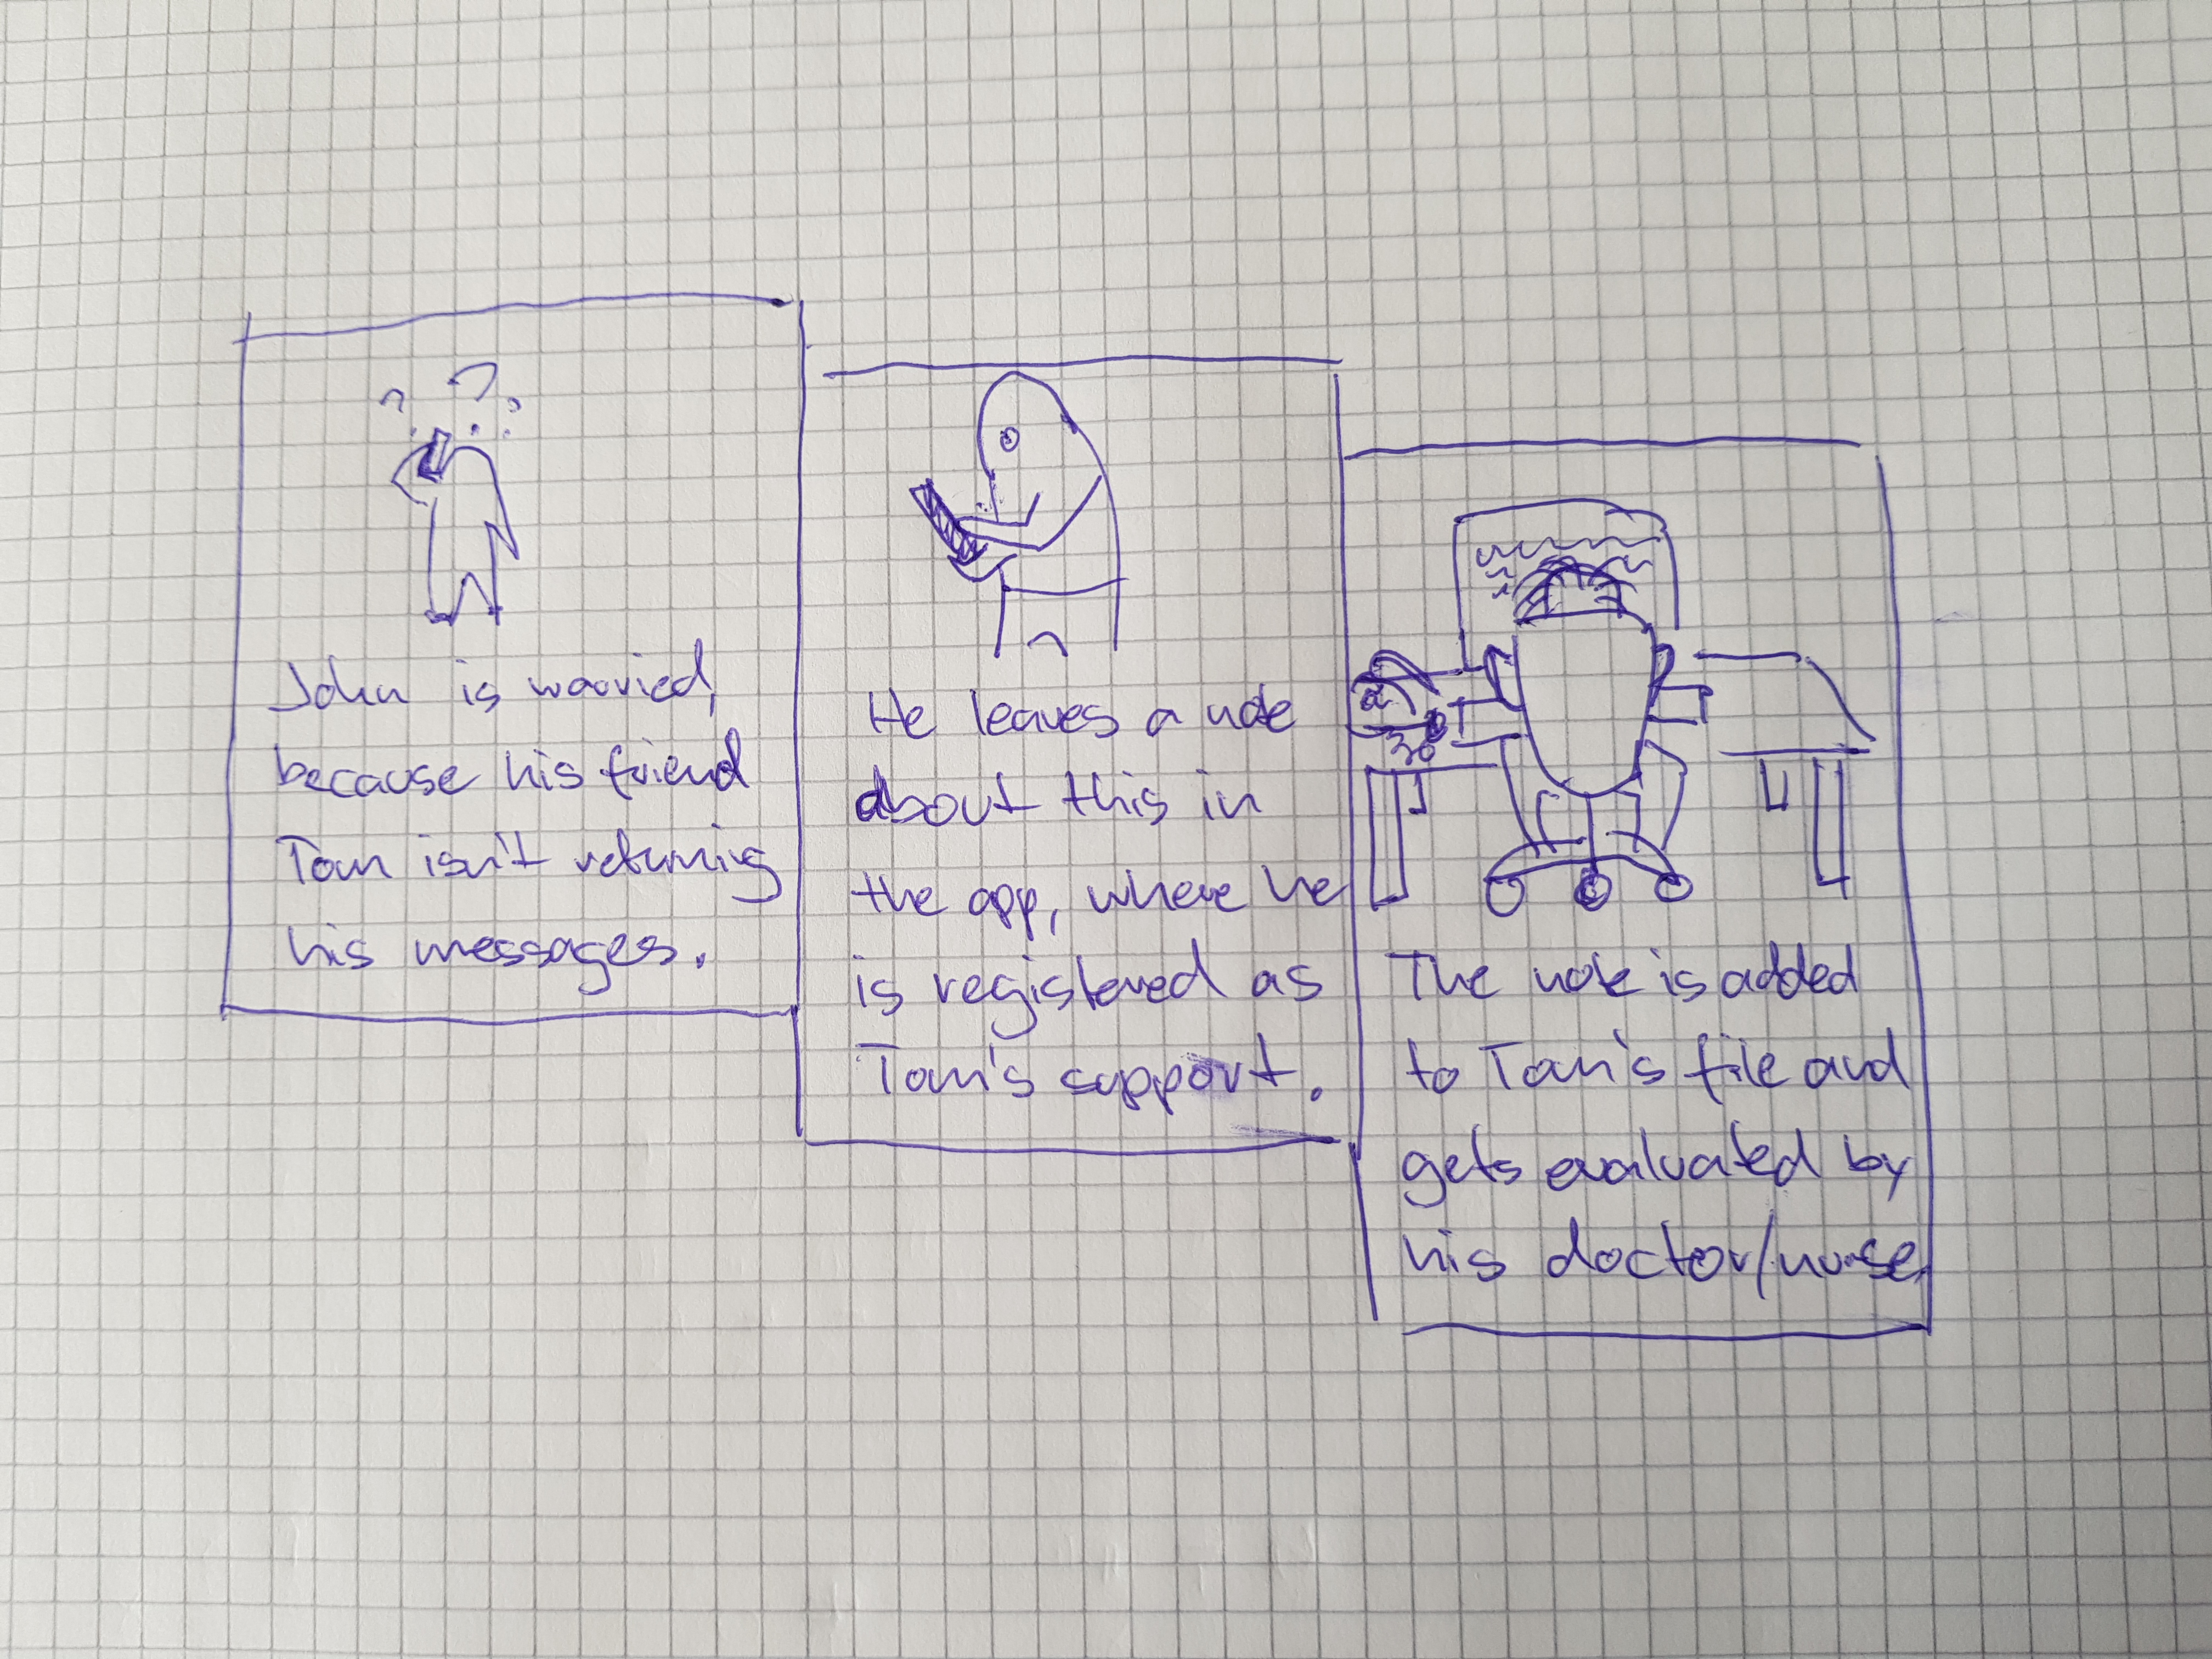 ? ? ?
John is worried,
because his friend
Tom isn't returning
his messages.
He leaves a note
about this in
the app, where he
is registered as
Tom's support.
The note is added
to Tom's file and
gets evaluated by
his doctor/nurse.